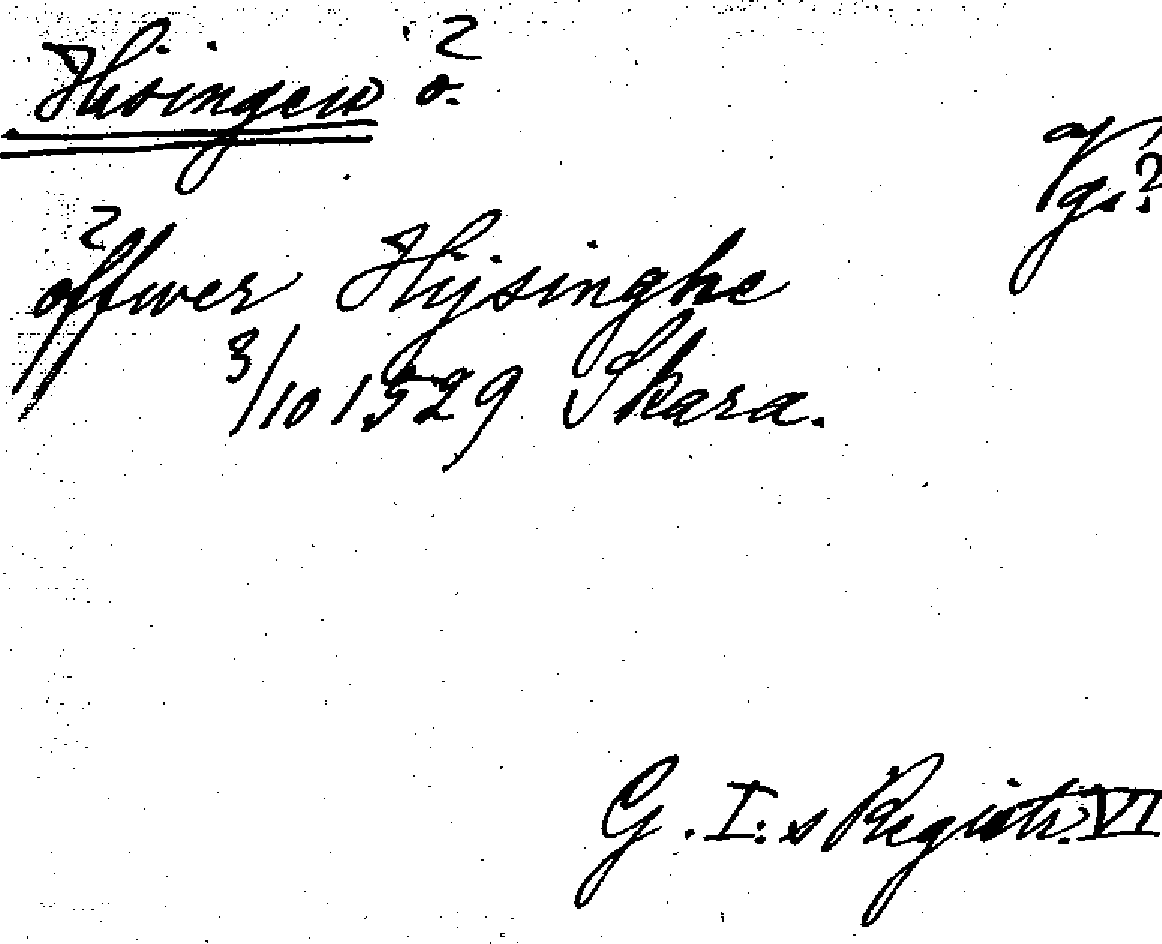 Hisingen ö. ?
Vg. ?
? offwer Hijsinghe
3/10 1529 Skara.
G. I:s Registr. VI